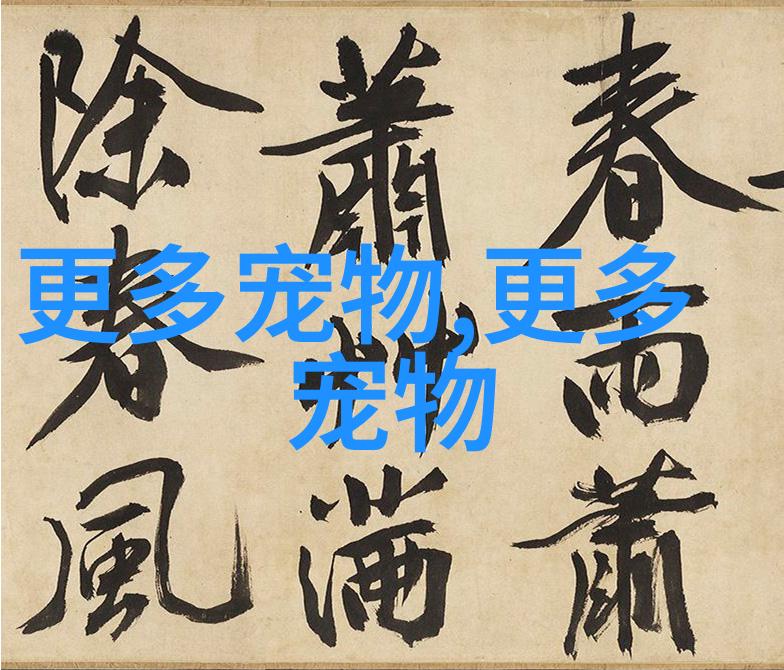 春雨蕭
蕭艸滿
除春風
更多宠物,更多
宠物